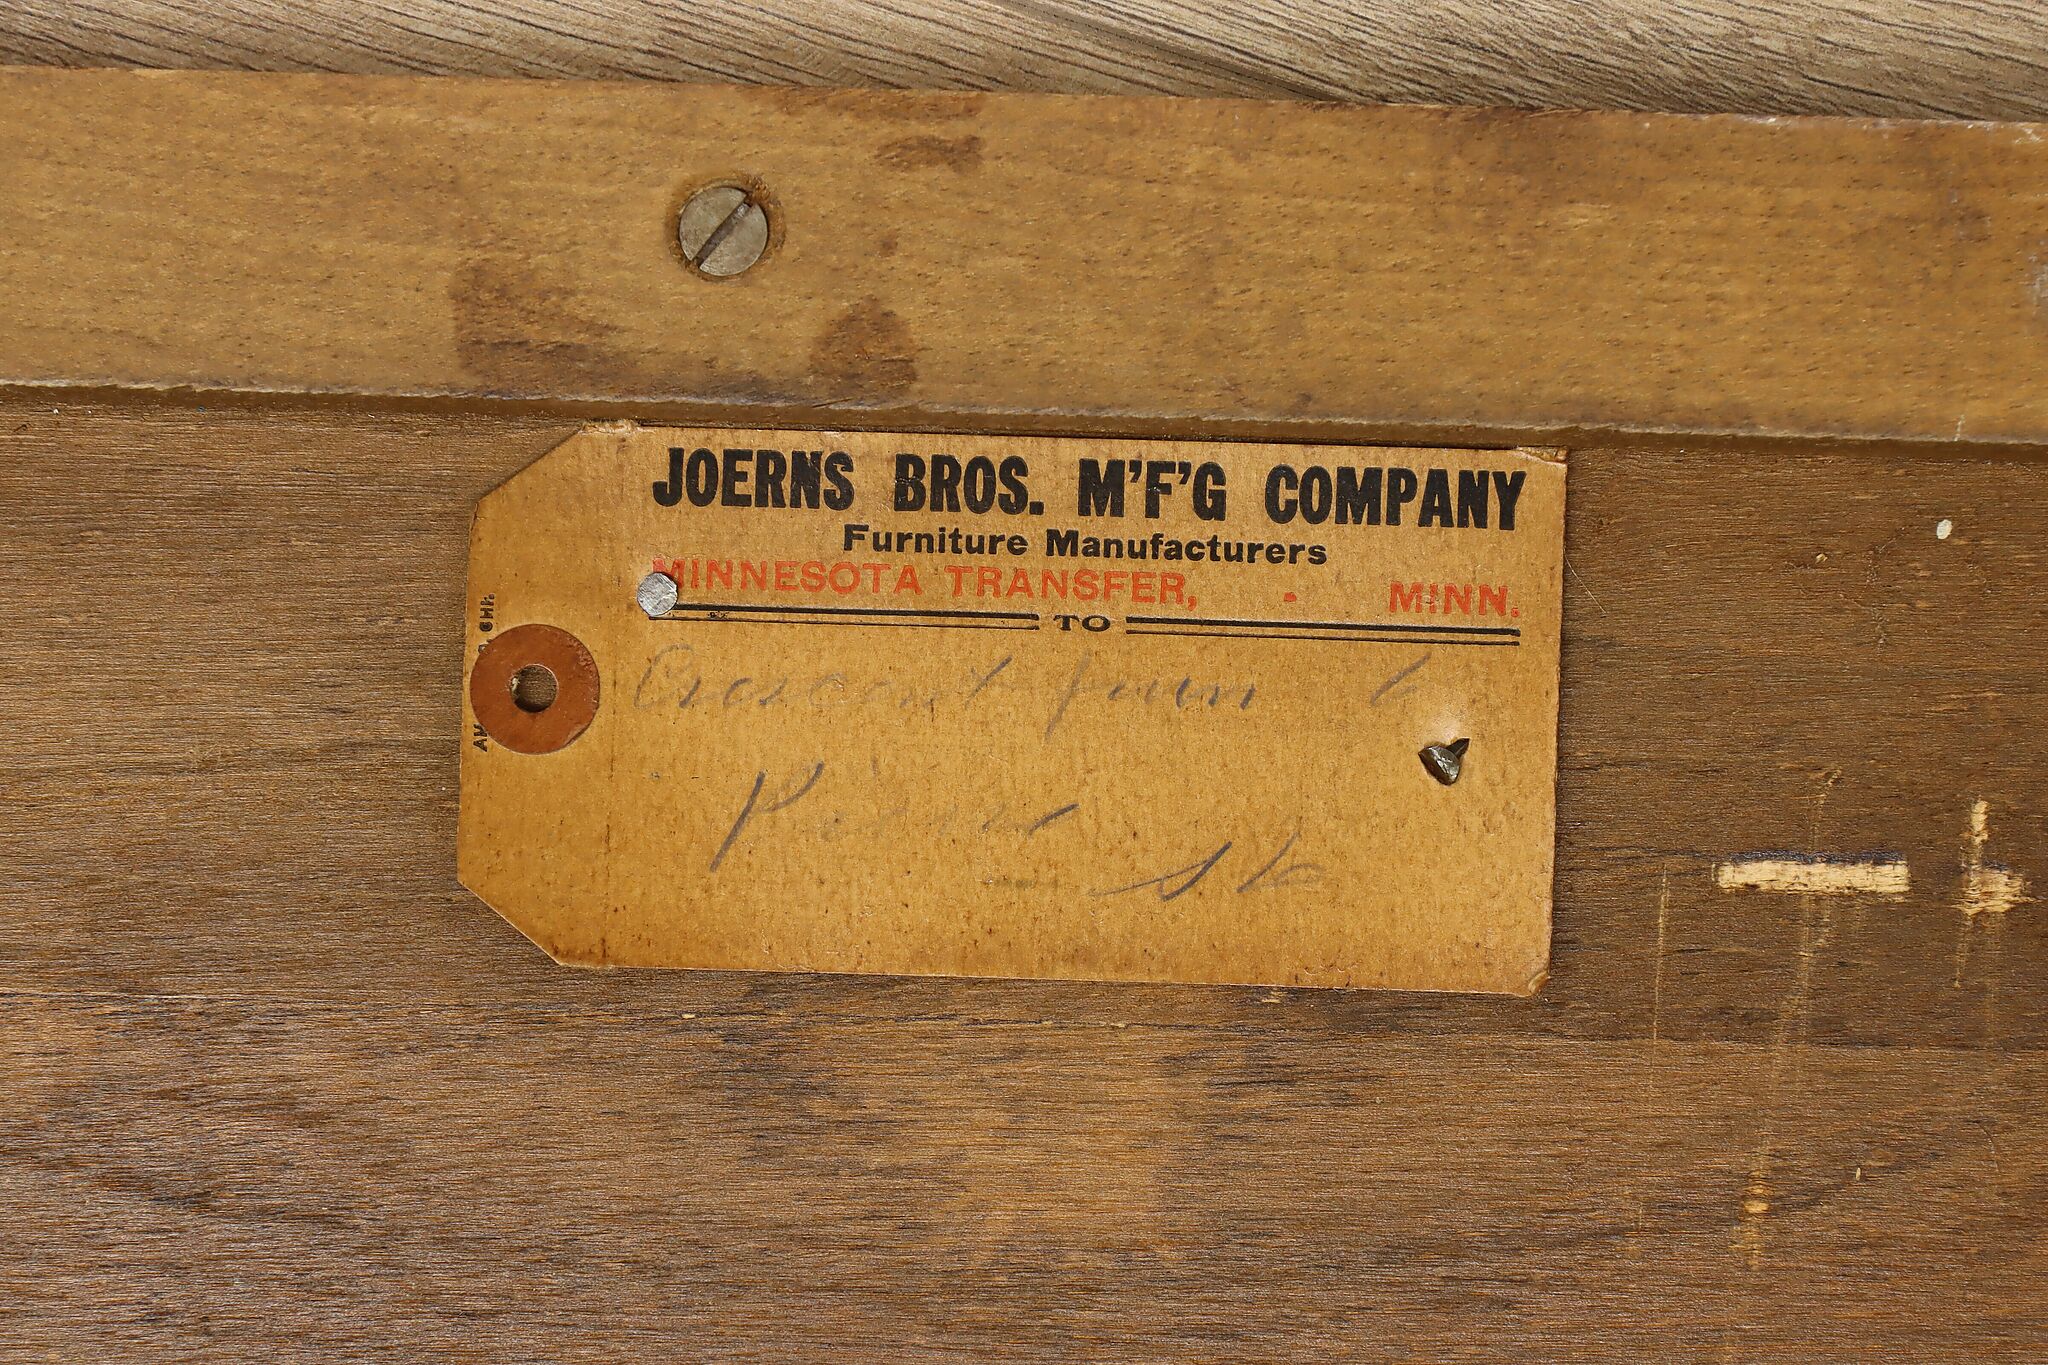 JOERNS BROS. M'F'G COMPANY
Furniture Manufacturers
MINNESOTA TRANSFER, - MINN.
TO
Crescent